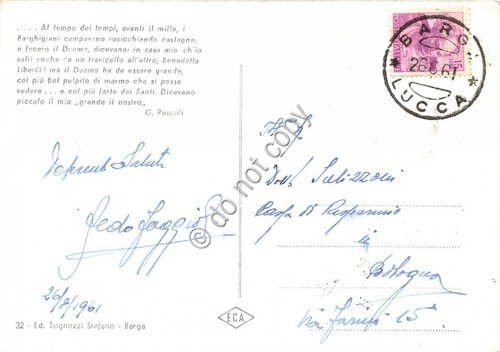 .... Al tempo dei tempi, avanti il mille, i
Barghigiani campavano rosicchiando castagne,
e fecero il Duomo, dicevano: in casa mia ch'io
salti anche da un travicello all'altro; Benedetta
Libertà! ma il Duomo ha da essere grande,
col più bel pulpito di marmo che si possa
vedere... e col più forte dei Santi. Dicevano
piccolo il mio „grande il nostro„.
G. Pascoli
BARGA
26. 8. 61
LUCCA
Saluti
26/8/1961
32 - Ed. Tognozzi Stefano - Barga
E.C.A.
Dott. Salizzoni
Cassa di Risparmio
in
Bologna
via Farini 25
do not copy